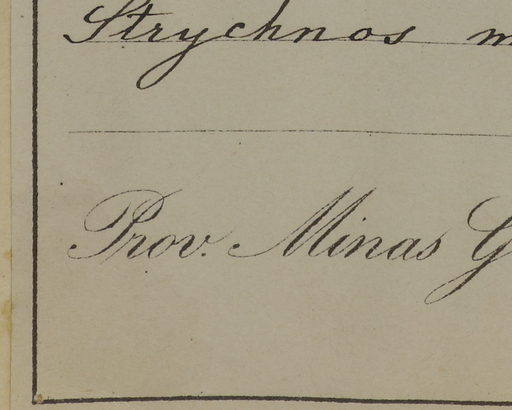 Strychnos
Prov. Minas